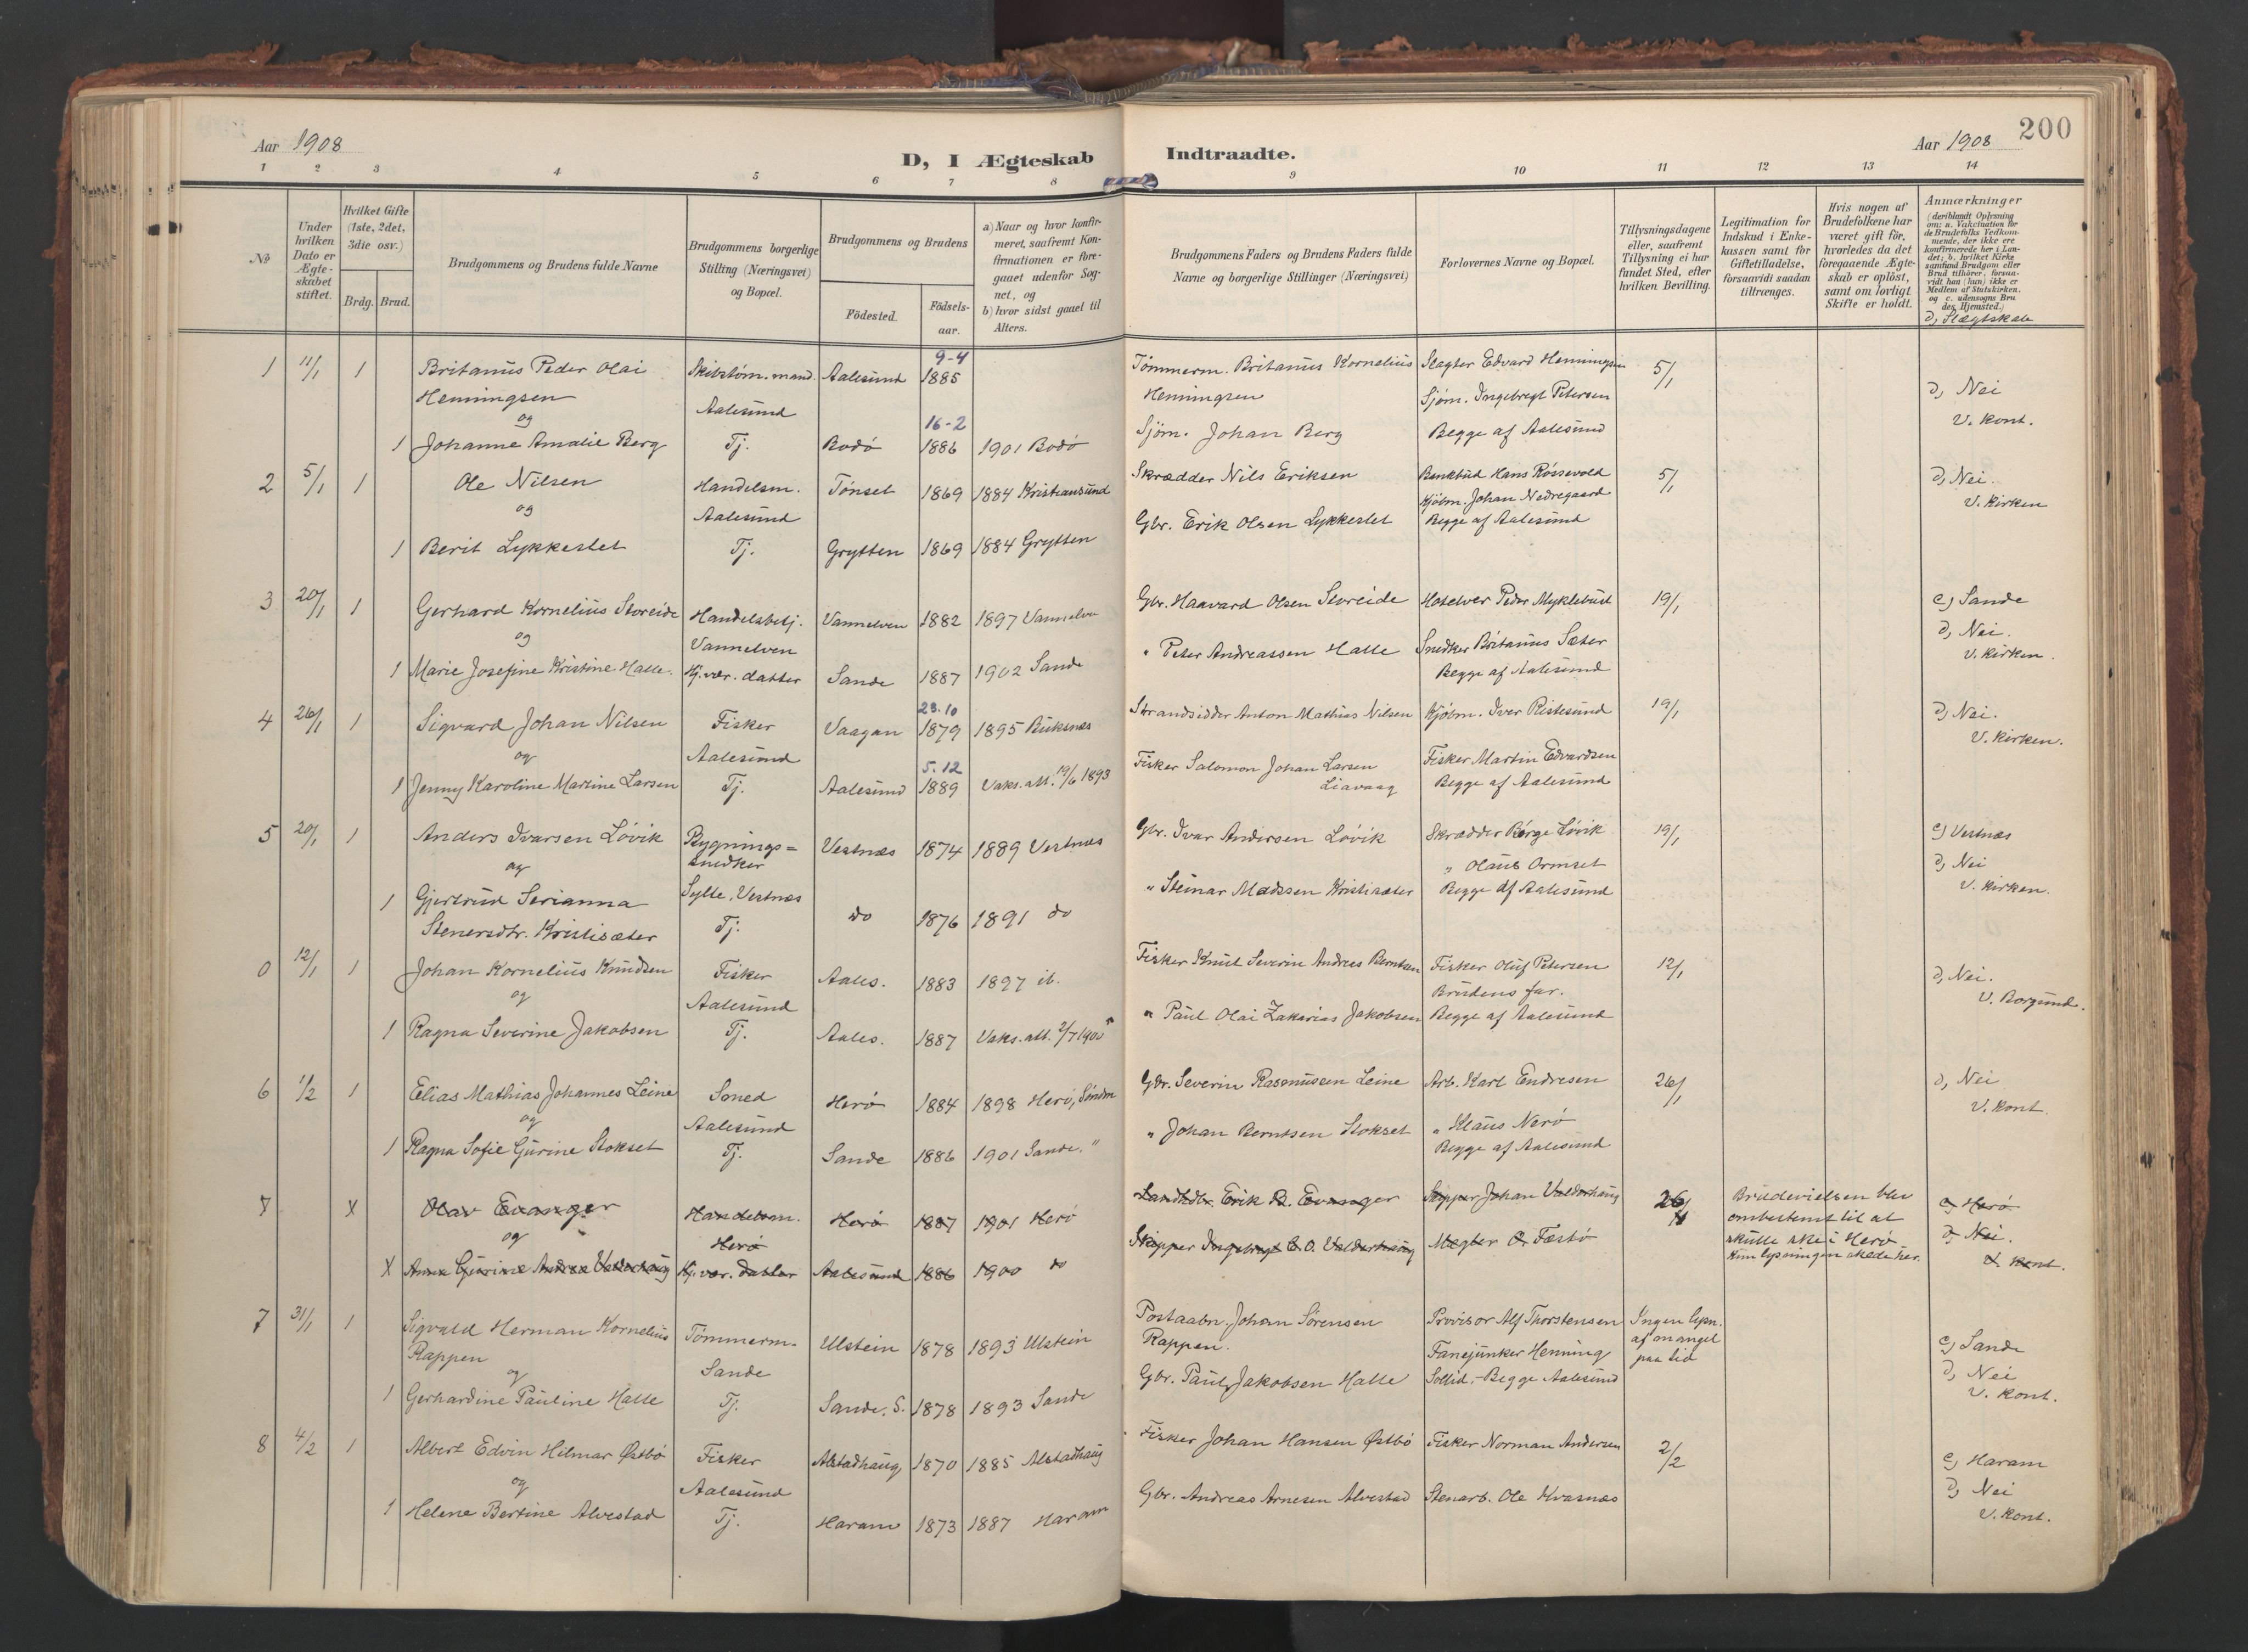 Aar 1908
D, I Ægteskab Indtraadte.
Aar 1908
200
1 2 3 4 5 6 7 8 9 10 11 12 13 14
No
Under hvilken Dato er Ægteskabet stiftet.
Hvilket Gifte (1ste, 2det, 3die osv.)
Brdg. Brud.
Brudgommens og Brudens fulde Navne
Brudgommens borgerlige Stilling (Næringsvei) og Bopæl.
Brudgommens og Brudens
Födested.
Födsels-aar.
a) Naar og hvor konfirmeret, saafremt Konfirmationen er foregaaet udenfor Sognet, og
b) hvor sidst gaaet til Alters.
Brudgommens Faders og Brudens Faders fulde Navne og borgerlige Stillinger (Næringsvei)
Forlovernes Navne og Bopæl.
Tillysningsdagene eller, saafremt Tillysning ei har fundet Sted, efter hvilken Bevilling.
Legitimation for Indskud i Enkekassen samt for Giftetilladelse, forsaavidt saadan tiltrænges.
Hvis nogen af Brudefolkene har været gift för, hvorledes da det foregaaende Ægteskab er oplöst, samt om lovligt Skifte er holdt.
Anmærkninger
(deriblandt Oplysning om: a. Vakcination for de Brudefolks Vedkommende, der ikke ere konfirmerede her i Landet; b. hvilket Kirkesamfund Brudgom eller Brud tilhörer, forsaavidt han (hun) ikke er Medlem af Statskirken, og c. udensogns Brudes Hjemsted.)
d, Slægtskab
1 11/1 1 Britanus Peder Olai Skibstøm.mand. Aalesund 9-4 1885 Tömmerm. Britanus Kornelius Slagter Edvard Henningsen 5/1
Henningsen Aalesund Henningsen Sjøm. Ingebregt Petersen d, Nei
og 16-2 V. Kont.
1 Johanne Amalie Berg Tj. Bodö 1886 1901 Bodö Sjøm. Johan Berg Begge af Aalesund
2 5/1 1 Ole Nilsen Handelsm. Tönset 1869 1884 Kristiansund Skrædder Nils Eriksen Bankbud Hans Rössevold 5/1 d, Nei.
og Aalesund Kjøbm. Johan Nedregaard V. Kirken
1 Berit Lykkeslet Tj. Grytten 1869 1884 Grytten Gbr. Erik Olsen Lykkeslet Begge af Aalesund
3 20/1 1 Gerhard Kornelius Storeide Handelsbetj. Vannelven 1882 1897 Vannelven Gbr. Haavard Olsen Storeide Hotelver Peder Myklebust 19/1 c) Sande
og Vannelven d, Nei.
1 Marie Josefine Kristine Halle. Kj.vær. datter Sande 1887 1902 Sande " Peter Andreassen Halle Snedker Britanus Sæter V. Kirken.
Begge af Aalesund
4 26/1 1 Sigvard Johan Nilsen Fisker Vaagan 23.10 1879 1895 Buksnæs Strandsidder Anton Mathias Nilsen Kjøbm. Iver Ristesund 19/1 d, Nei.
og Aalesund 5.12 V. Kirken.
1 Jenny Karoline Martine Larsen Tj. Aalesund 1889 Vaks.att. 19/6 1893 Fisker Salomon Johan Larsen Liavaag Fisker Martin Edvardsen
Begge af Aalesund
5 20/1 1 Anders Ivarsen Lövik Bygnings= snedker Vestnæs 1874 1889 Vestnæs Gbr. Ivar Andersen Lövik Skrædder Børge Lövik 19/1 c) Vestnæs
og Sylte, Vestnæs " Olaus Ormset d, Nei
1 Gjertrud Serianna Stenersdtr. Kristisæter Tj. do 1876 1891 do " Steinar Madssen Kristisæter Begge af Aalesund V. Kirken.
0 12/1 1 Johan Kornelius Knudsen Fisker Aales. 1883 1897 ib. Fisker Knut Severin Andreas Berntsen Fisker Oluf Petersen 12/1 d, Nei.
og Aalesund Brudens far. V. Borgund.
1 Ragna Severine Jakobsen Tj. Aales. 1887 Vaks.att. 2/7 1900 " Paul Olai Zakarias Jakobsen Begge af Aalesund
6 1/2 1 Elias Mathias Johannes Leine Smed Herö 1884 1898 Herö, Söndm Gbr. Severin Rasmussen Leine Arb. Karl Endresen 26/1 d, Nei
og Aalesund " Klaus Nerö V. Kont.
1 Ragna Sofie Gurine Stokset Tj. Sande 1886 1901 Sande. " " Johan Berntsen Stokset Begge af Aalesund
7 X Olav Evanger Handelsm. Herö 1887 1901 Herö Landhdlr. Erik B. Evanger Skipper Johan Valderhaug 26/1 Brudevielsen blev ombestemt til at skulle ske i Herö. Kun lysningen skede her. c) Herö
og Herö d, Nei.
X Anna Gurine Andrea Valderhaug Kj.vær. datter Aalesund 1886 1900 do Skipper Ingebrigt E. O. Valderhaug Mægler O. Fæstö V. Kont.
7 31/1 1 Sigvald Herman Kornelius Rappen Tömmerm. Ulstein 1878 1893 Ulstein Postaabn. Johan Sörensen Rappen. Provisor Alf Thorstensen Ingen lysn. af mangel paa tid c) Sande
og Sande Fanejunker Henning d, Nei
1 Gerhardine Pauline Halle Tj. Sande, S. 1878 1893 Sande Gbr. Paul Jakobsen Halle Sollid.- Begge Aalesund V. Kont.
8 4/2 1 Albert Edvin Hilmar Østbö Fisker Alstadhaug 1870 1885 Alstadhaug Fisker Johan Hansen Østbö Fisker Norman Andersen 2/2 c) Haram
og Aalesund d, Nei
1 Helene Bertine Alvestad Tj. Haram 1873 1887 Haram Gbr. Andreas Arnesen Alvestad Stenarb. Ole Kvasnæs V. Kont.